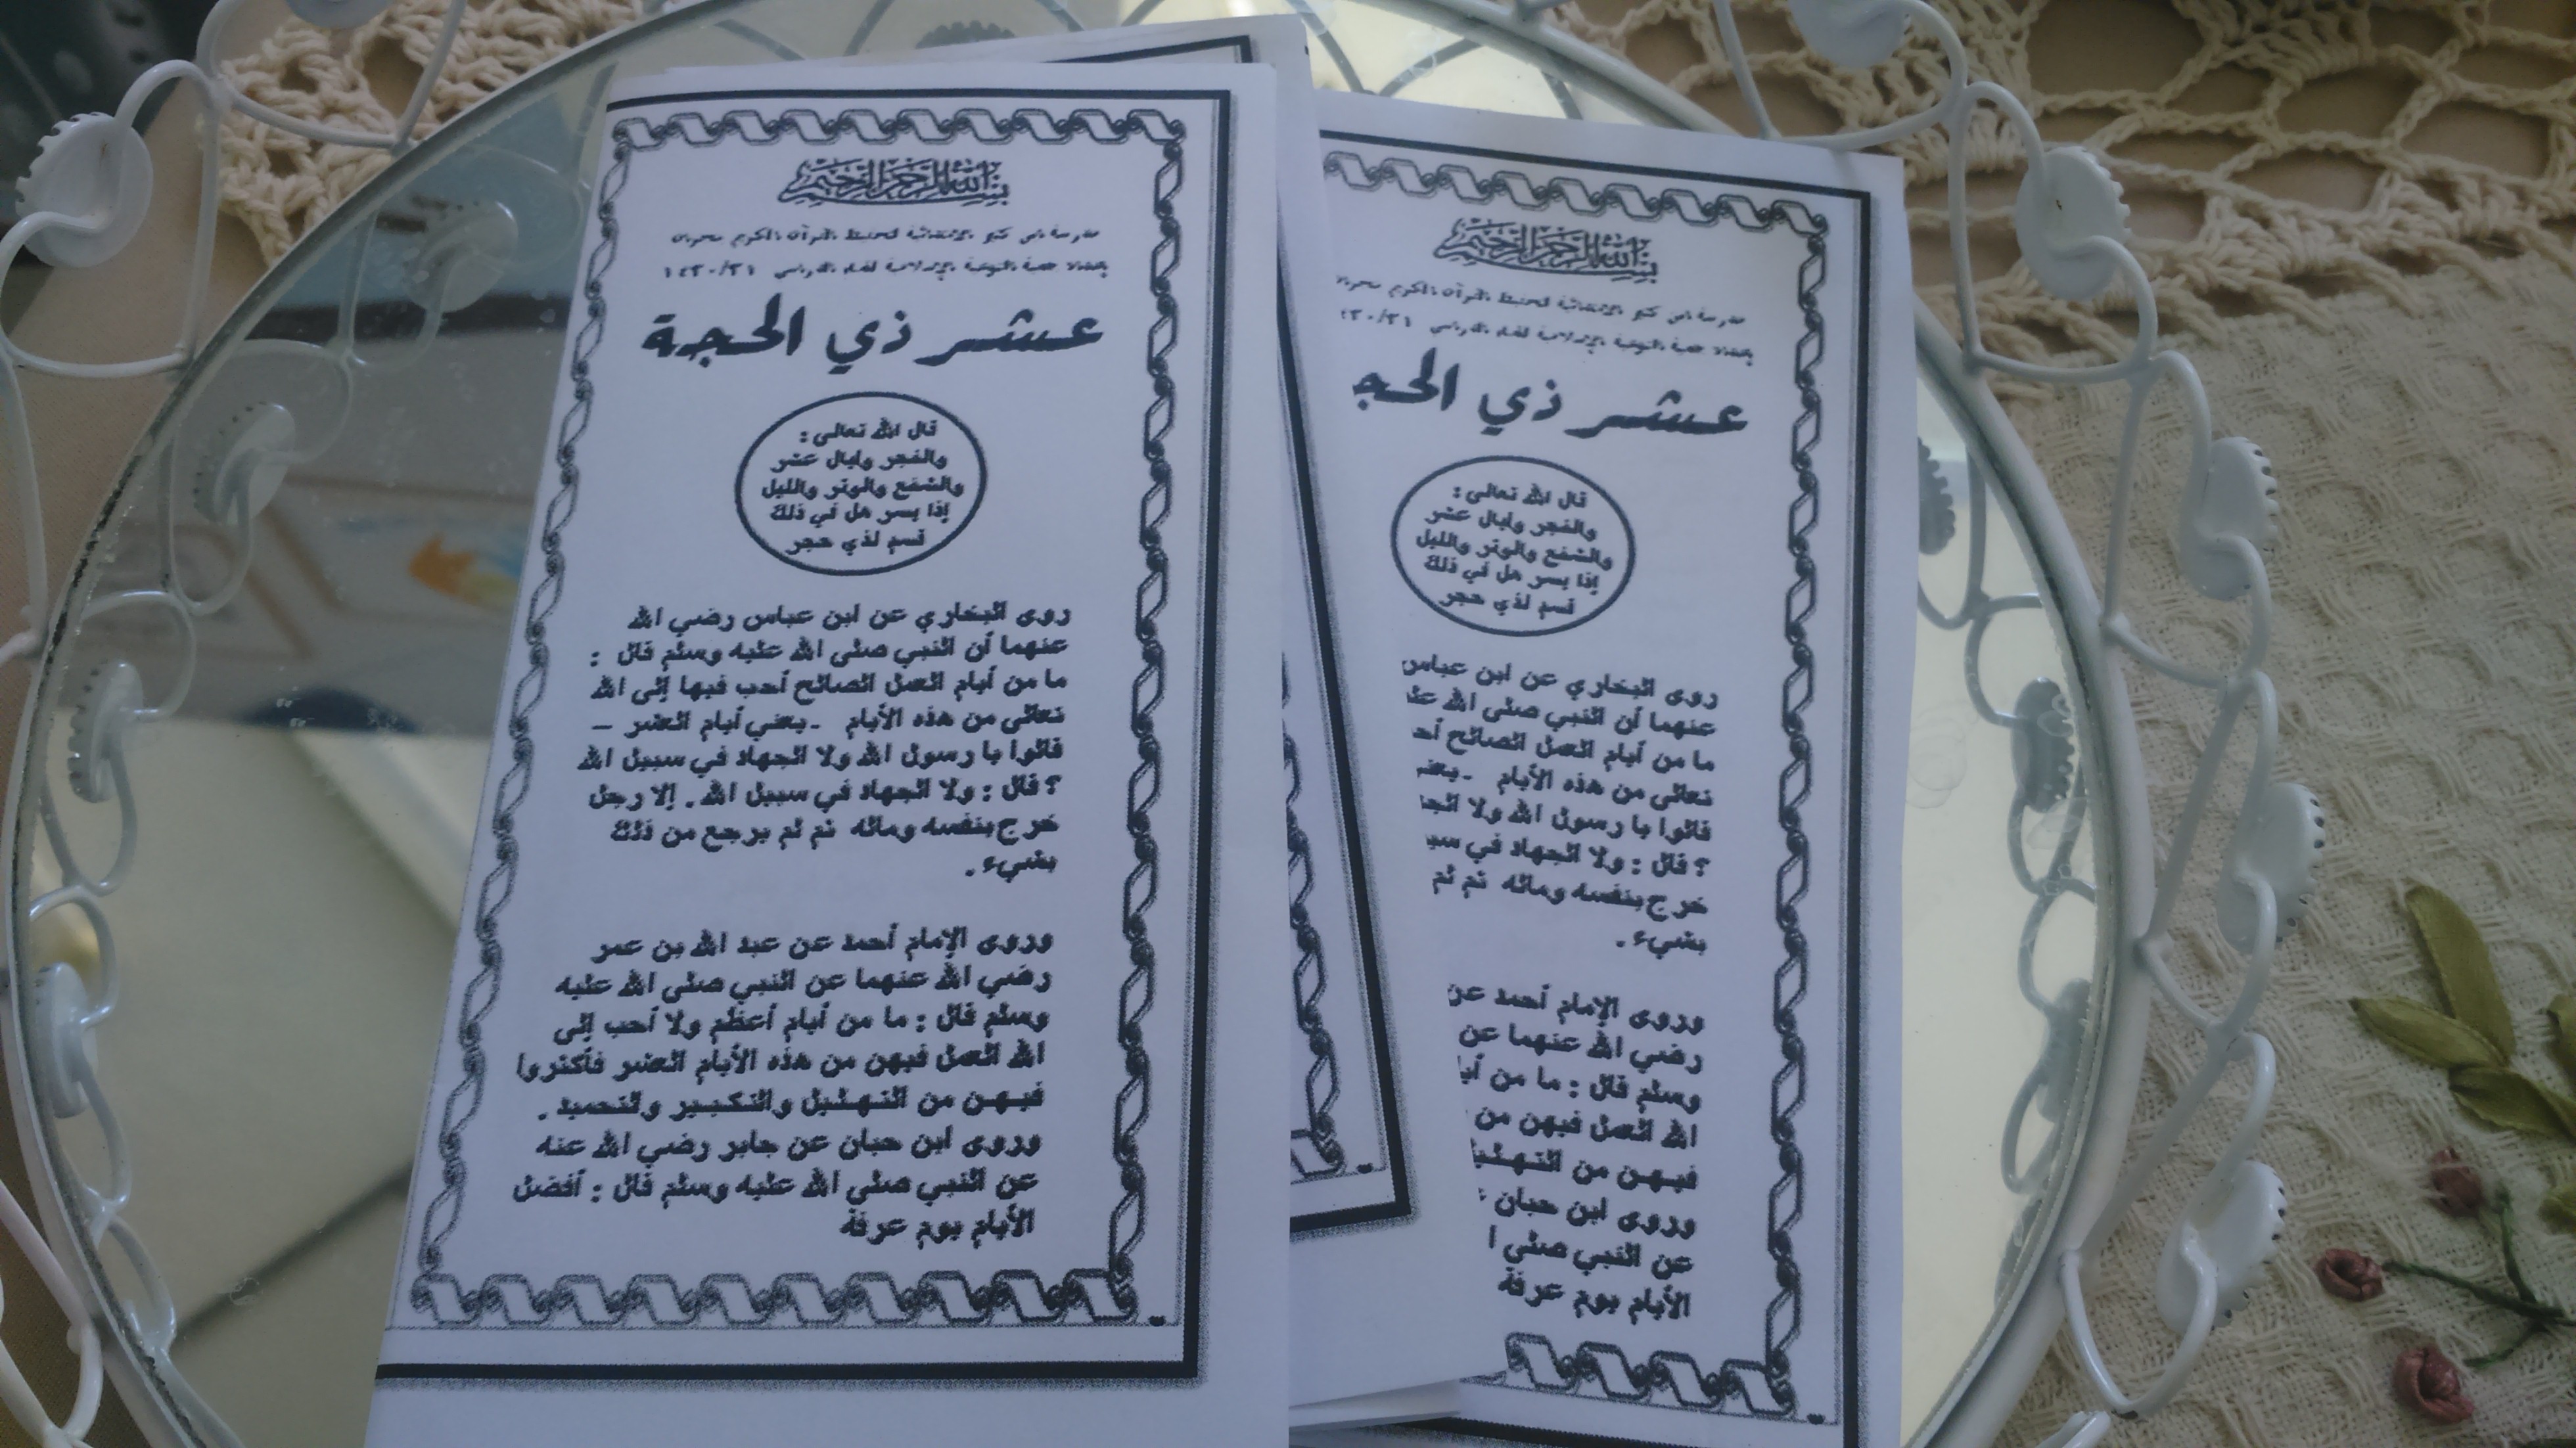 بسم الله الرحمن الرحيم
مدرسة ابن كثير الابتدائية لتحفيظ القرآن الكريم بنجران
التوعية الإسلامية للعام الدراسي ١٤٣٠/٣١
عشر ذي الحجة
قال الله تعالى :
والفجر وليال عشر
والشفع والوتر والليل
إذا يسر هل في ذلك
قسم لذي حجر
روى البخاري عن ابن عباس رضي الله
عنهما أن النبي صلى الله عليه وسلم قال :
ما من أيام العمل الصالح أحب فيها إلى الله
تعالى من هذه الأيام - يعني أيام العشر –
قالوا يا رسول الله ولا الجهاد في سبيل الله
؟ قال : ولا الجهاد في سبيل الله . إلا رجل
خرج بنفسه وماله ثم لم يرجع من ذلك
بشيء .
وروى الإمام أحمد عن عبد الله بن عمر
رضي الله عنهما عن النبي صلى الله عليه
وسلم قال : ما من أيام أعظم ولا أحب إلى
الله العمل فيهن من هذه الأيام العشر فأكثروا
فيهن من التهليل والتكبير والتحميد .
وروى ابن حبان عن جابر رضي الله عنه
عن النبي صلى الله عليه وسلم قال : أفضل
الأيام يوم عرفة
بسم الله الرحمن الرحيم
مدرسة ابن كثير الابتدائية لتحفيظ القرآن الكريم بنجران
التوعية الإسلامية للعام الدراسي
عشر ذي الحج
قال الله تعالى :
والفجر وليال عشر
والشفع والوتر والليل
إذا يسر هل في ذلك
قسم لذي حجر
روى البخاري عن ابن عباس
عنهما أن النبي صلى الله عل
ما من أيام العمل الصالح أح
تعالى من هذه الأيام - يعن
قالوا يا رسول الله ولا الج
؟ قال : ولا الجهاد في سب
خرج بنفسه وماله ثم لم
بشيء .
وروى الإمام أحمد عن
رضي الله عنهما عن
وسلم قال : ما من أيا
الله العمل فيهن من
فيهن من التهلي
وروى ابن حبان
عن النبي صلى ا
الأيام يوم عرفة